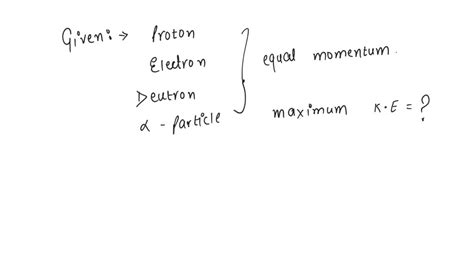 Given:→ Proton
Electron
Deutron
α - Particle
equal momentum.
maximum K·E = ?